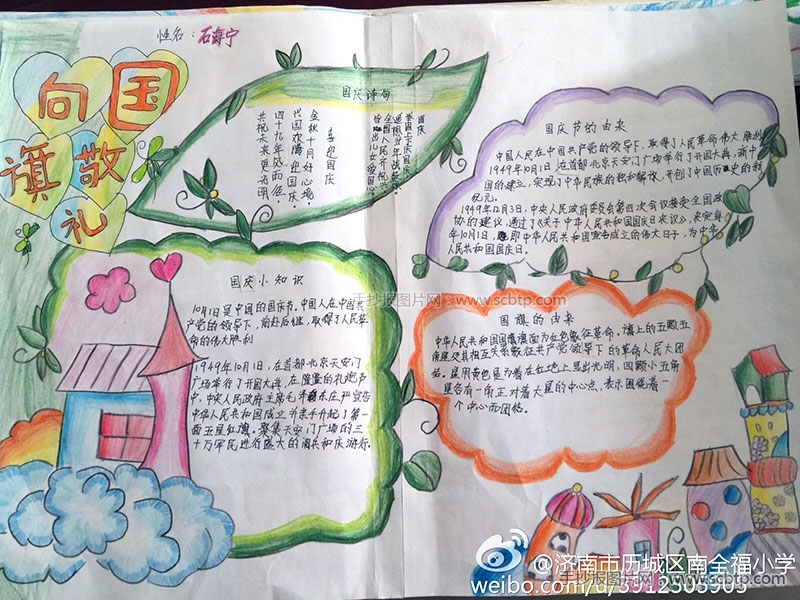 姓名：石海宁
向国
旗敬
礼
国庆诗句
喜迎国庆
金秋十月好心境，
代国欢腾迎国庆。
四十九年风雨征，
共祝未来更光明
国庆
举国上下庆国庆
国庆节的由来
中国人民在中国共产党的领导下，取得了人民革命伟大胜利
1949年10月1日，在首都北京天安门广场举行了开国大典，新中
国的建立，实现了中华民族的独和解放，开创了中国历史的新
纪元。
1949年12月3日，中央人民政府委员会第四次会议接受全国政
协的建议，通过了《关于中华人民共和国国庆日决议》，决定每
年10月1日，即中华人民共和国宣告成立的伟大日子，为中华
人民共和国国庆日。
国庆小知识
10月1日是中国的国庆节。中国人在中国共
产党的领导下，前赴后继，取得了人民革
命的伟大胜利
1949年10月1日，在首都北京天安门
广场举行了开国大典，在隆重的礼炮声
中，中央人民政府主席毛泽东庄严宣告
中华人民共和国成立并亲手升起了第一
面五星红旗。聚集天安门广场的三
十万军民进行盛大的阅兵和庆游行。
国旗的由来
中华人民共和国国旗旗面为红色象征革命。旗上的五颗五
角星及其相互关系象征共产党领导下的革命人民大团
结。星用黄色是为着在红地上显出光明，四颗小五角
星各有一角正对着大星的中心点，表示围绕着一
个中心而团结。
手抄报图片网 www.scbtp.com
@济南市历城区南全福小学
手抄报图片网 www.scbtp.com
weibo.com/u/3912303903